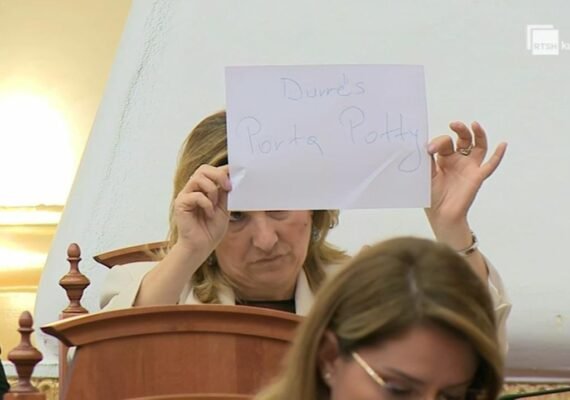 RTSH
Durrës
Porta Potty